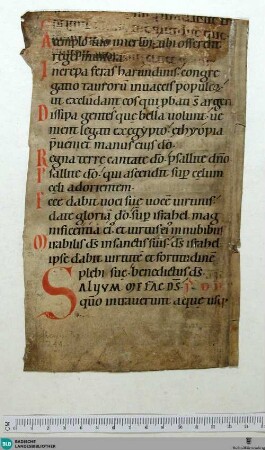 A templo tuo in ierłm. tibi offerent
reges munera.
I ncrepa feras harundinis. congre
gatio taurorum in uaccis populorum.
ut excludant eos qui pbati s̄ argento
D issipa gentes que bella uolunt. ue
nient legati ex egypto. ethyopia
pueniet manus eius dō.
R egna terre cantate dō. psallite dn̄o
P sallite dō. qui ascendit sup celum
celi ad orientem.
E cce dabit uoci sue uocē uirtutis
date gloriā dō. sup israhel. mag
nificentia ei'. et uirtus ei' in nubibus
M irabilis dš in sanctis suis. dš israhel
ipse dabit uirtutē et fortitudinē
plebi sue. benedictus dš
SALVVM ME FAC DŠ
qm̄ intrauerunt aque usq;
BLB BADISCHE
LANDESBIBLIOTHEK